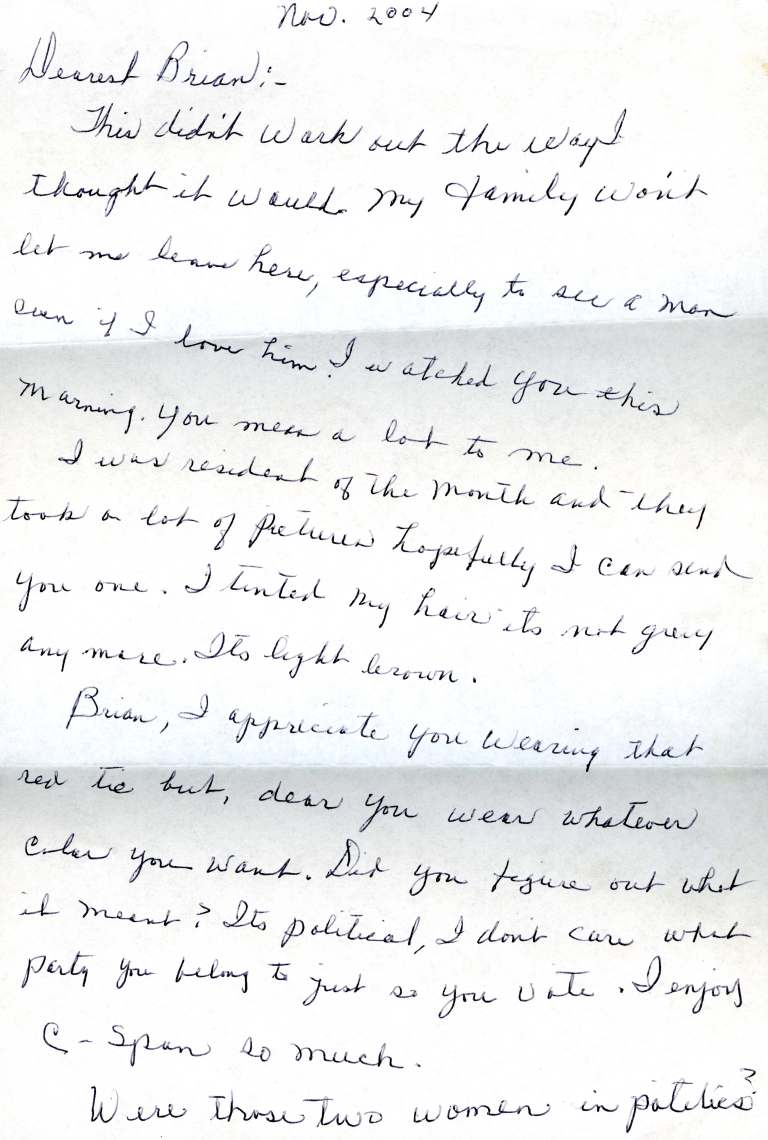 Nov. 2004
Dearest Brian:-
This didn't work out the way I
thought it would. My family won't
let me leave here, especially to see a man
even if I love him. I watched you this
morning. You mean a lot to me.
I was resident of the month and they
took a lot of pictures hopefully I can send
you one. I tinted my hair its not grey
any more. Its light brown.
Brian, I appreciate you wearing that
red tie but, dear you wear whatever
color you want. Did you figure out what
it meant? Its political, I don't care what
party you belong to just so you vote. I enjoy
C-Span so much.
Were those two women in politics?